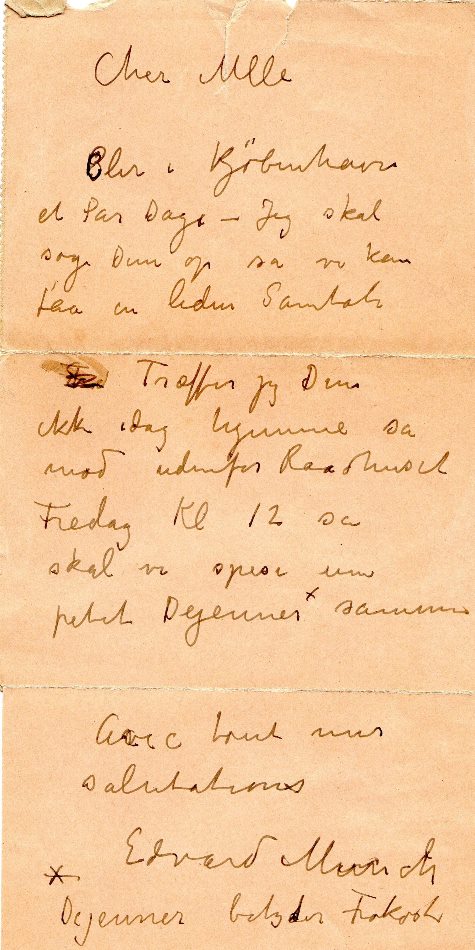 Cher Mlle
Blir i Kjöbenhavn
et Par Dage – Jeg skal
søge Dem op sa vi kan
faa en liden Samtale
Træffer jeg Dem
ikke idag hjemme sa
mød udenfor Raadhuset
Fredag Kl 12 sa
skal vi spise une
petit Dejeuner* sammen
Avec tout mes
salutations
Edvard Munch
* Dejeuner betyder Frokost